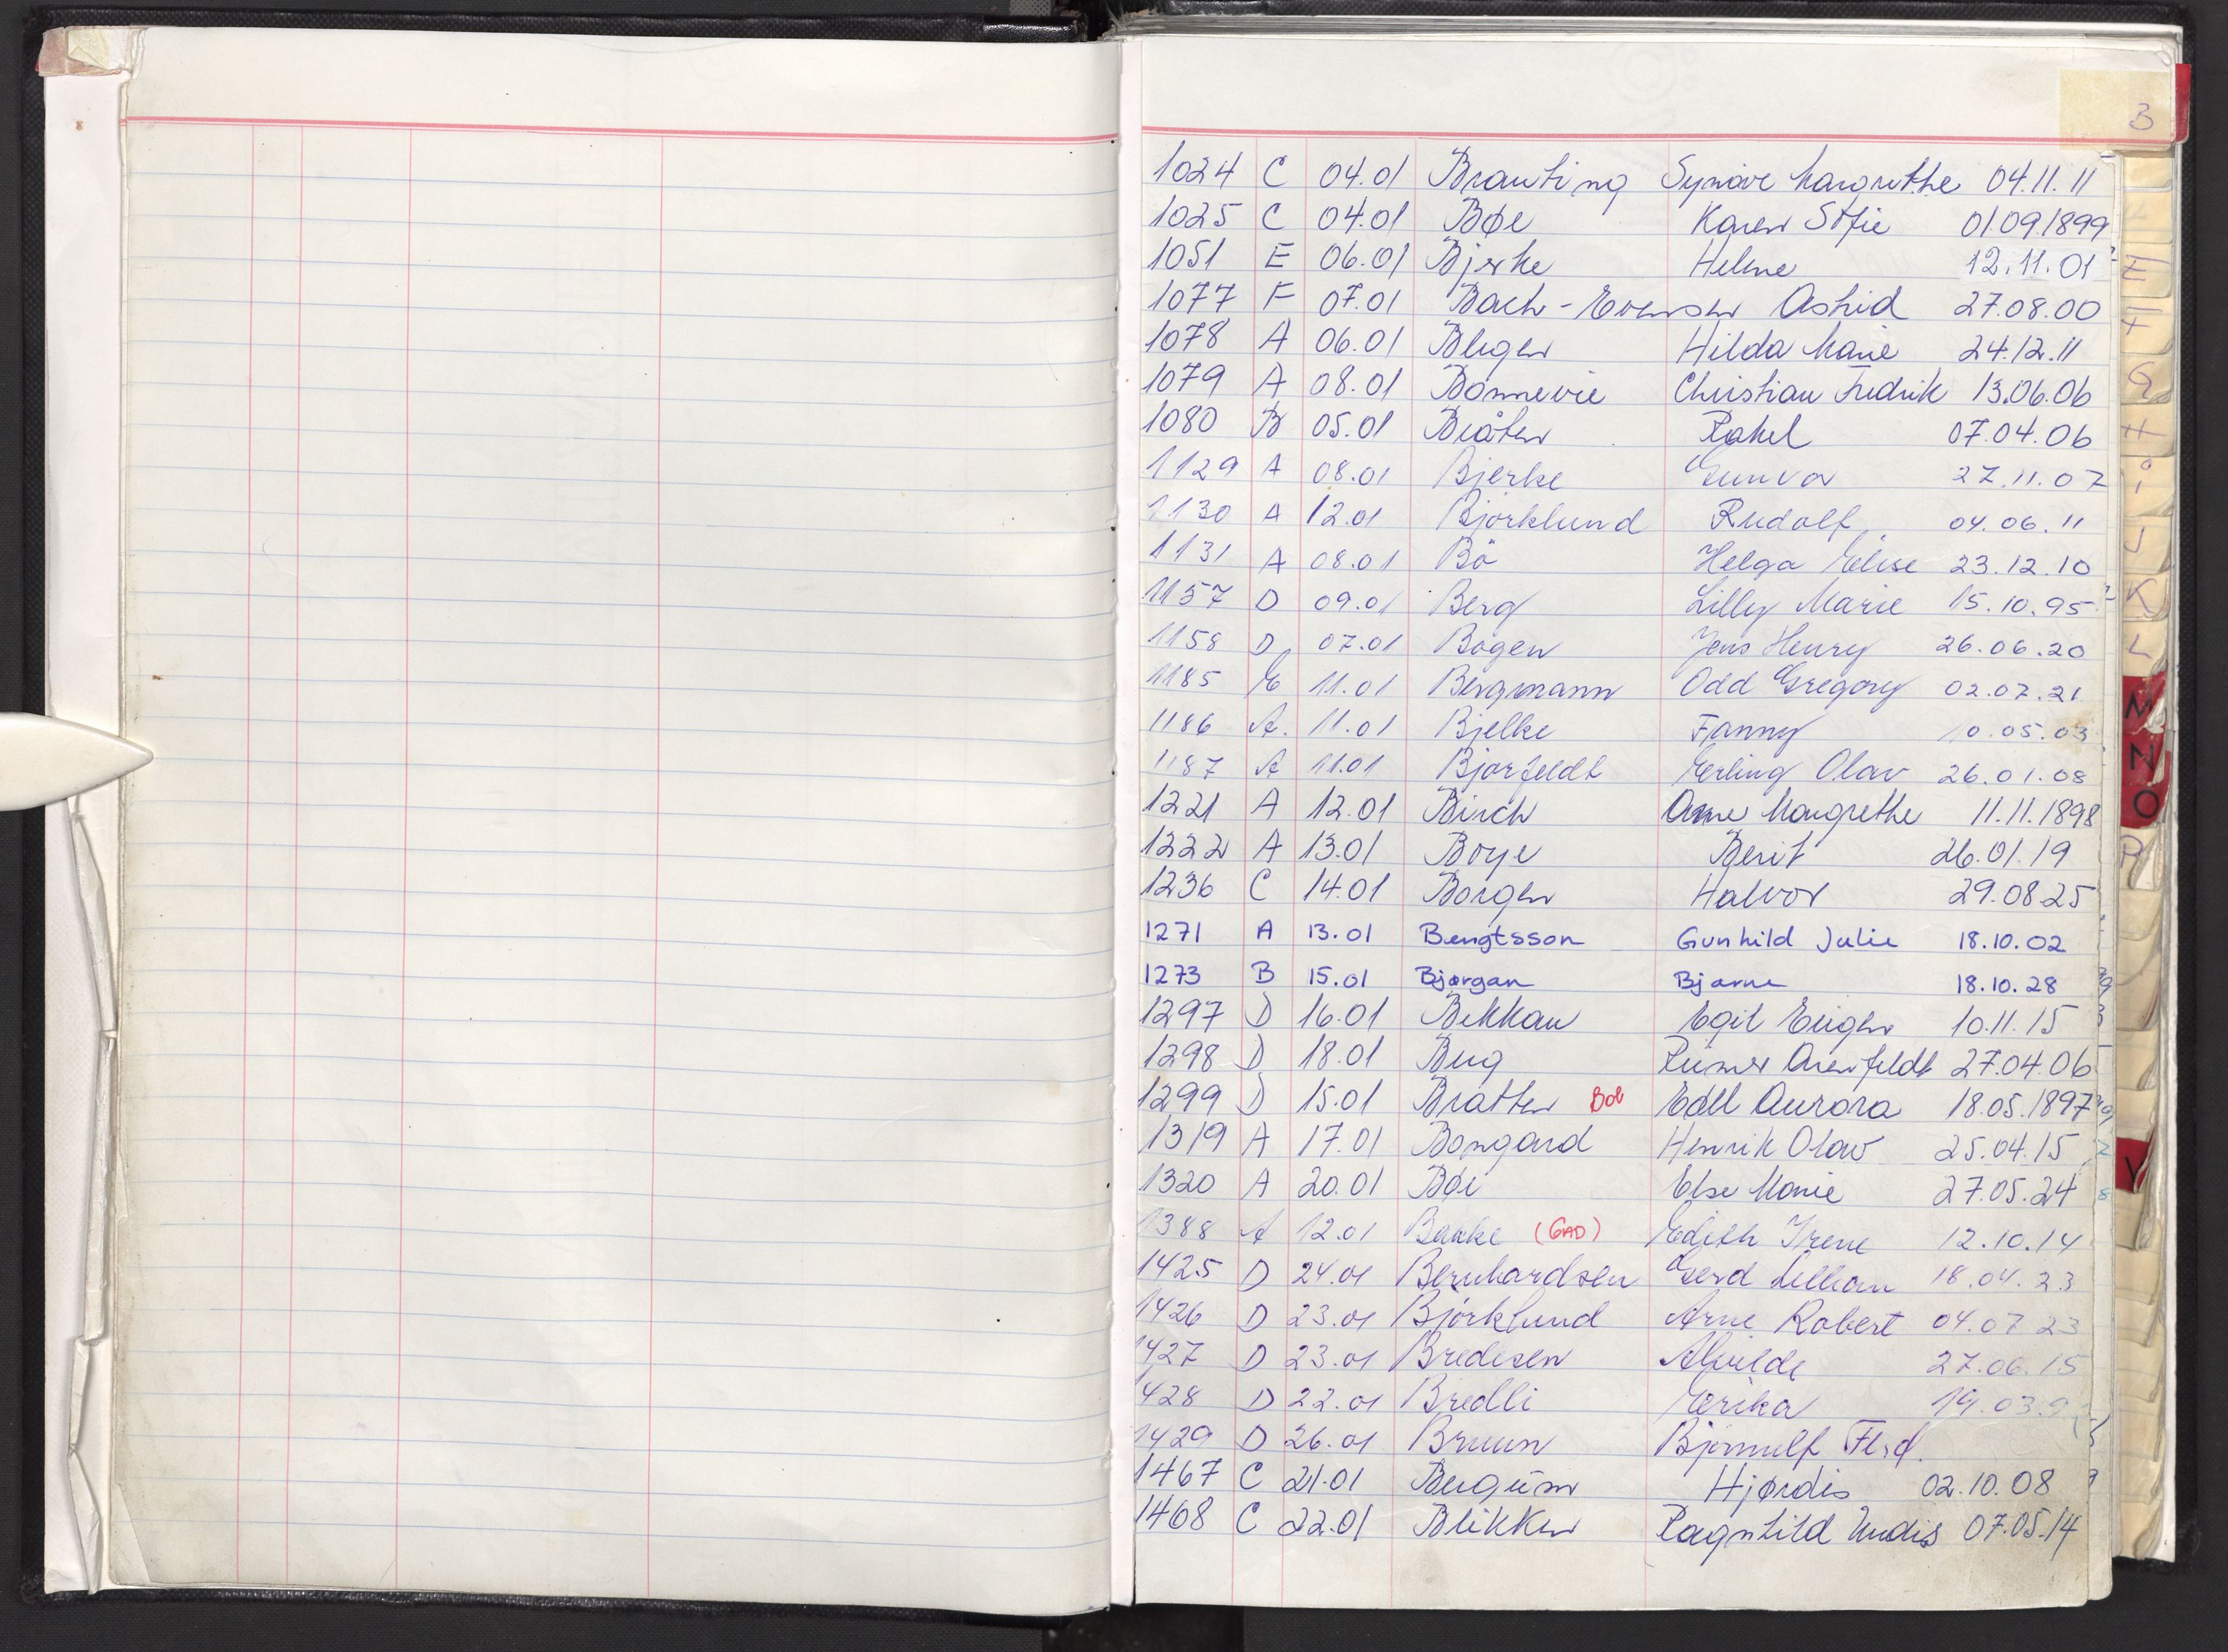 B
1024 C 04.01 Brauting Synøve Margrethe 04.11.11
1025 C 04.01 Bøe Karen Sofie 01.09.1899
1051 E 06.01 Bjerke Helene 12.11.01
1077 F 07.01 Bach-Evensen Astrid 27.08.00
1078 A 06.01 Bleger Hilda Marie 24.12.11
1079 A 08.01 Bonnevie Christian Fredrik 13.06.06
1080 B 05.01 Bråten Rakel 07.04.06
1129 A 08.01 Bjerke Gunvor 27.11.07
1130 A 12.01 Björklund Rudolf 04.06.11
1131 A 08.01 Bö Helga Elise 23.12.10
1157 D 09.01 Berg Lilly Marie 15.10.95
1158 D 07.01 Bogen Jens Henry 26.06.20
1185 E 11.01 Bergmann Odd Gregory 02.07.21
1186 A. 11.01 Bjelke Fanny 10.05.03
1187 A 11.01 Bjørfeldt Erling Olav 26.01.08
1221 A 12.01 Birch Anne Margrethe 11.11.1898
1222 A 13.01 Boye Berit 26.01.19
1236 C 14.01 Borgen Halvor 29.08.25
1271 A 13.01 Bengtsson Gunhild Julie 18.10.02
1273 B 15.01 Bjørgan Bjarne 18.10.28
1297 D 16.01 Bekkan Egil Eugen 10.11.15
1298 D 18.01 Berg 27.04.06
1299 D 15.01 Bratten Bob Edel Aurora 18.05.1897
1319 A 17.01 Bongard Henrik Olav 25.04.15
1320 A 20.01 Bøe Else Marie 27.05.24
1388 A 12.01 Bakke (GAD) Edith Irene 12.10.14
1425 D 24.01 Bernhardsen Gerd Lillian 18.04.23
1426 D 23.01 Björklund Arne Robert 04.07.23
1427 D 23.01 Bredesen Alvilde 27.06.15
428 D 22.01 Bredli Erika 19.03.9
1429 D 26.01 Bruun Bjørnulf Ferd.
1467 C 21.01 Bergum Hjørdis 02.10.08
1468 C 22.01 Blikken Ragnhild Undis 07.05.14
E
F
G
H
i
J
K
L
M
N
O
P
V